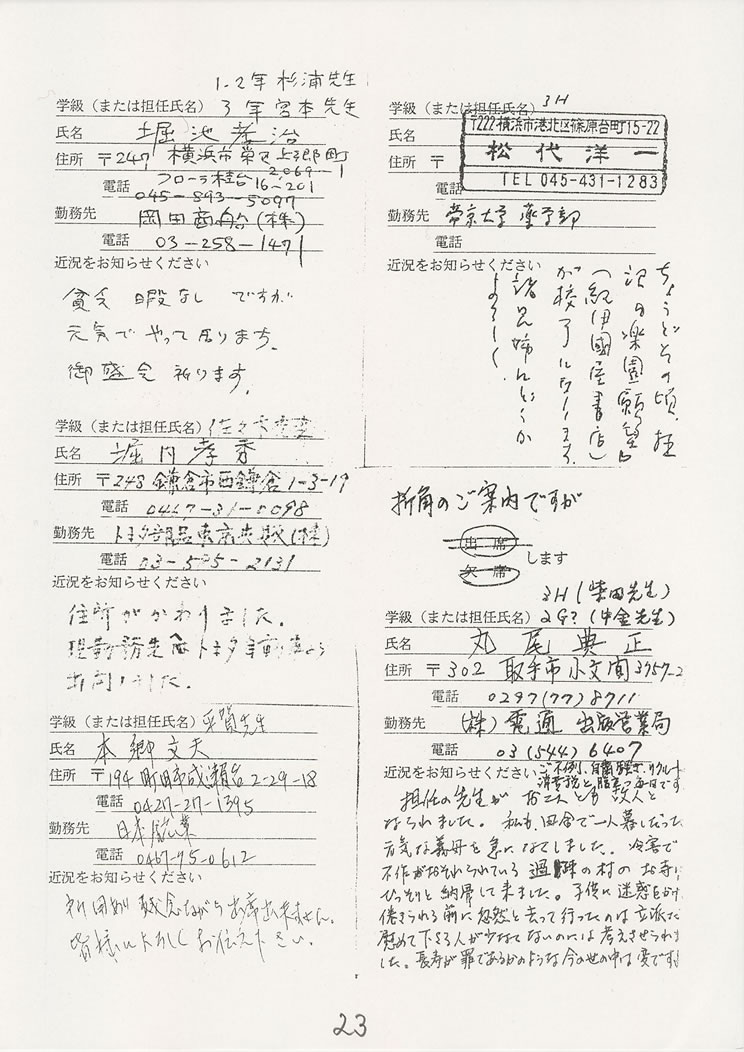 1-2年 杉浦先生
学級（または担任氏名）3年宮本先生
氏名 堀池孝治
住所 〒247 横浜市栄区上郷町
2,069-1
フローラ桂台16-201
電話 045-893-5097
勤務先 岡田商船(株)
電話 03-258-1471
近況をお知らせください
貧乏 暇なし ですが
元気でやって居ります。
御盛会 祈ります。
学級（または担任氏名）佐々木
氏名 堀内孝
住所 〒248 鎌倉市西鎌倉1-3-19
電話 0467-31-8098
勤務先 トヨタ部品東京共販(株)
電話
近況をお知らせください
住所がかわりました。
現勤務先へはトヨタ自動車より
出向しました。
学級（または担任氏名）平賀先生
氏名 本郷文夫
住所 〒194 町田市成瀬台2-29-18
電話 0427-27-1395
勤務先 日本鉱業
電話 0467-75-0612
近況をお知らせください
残念ながら出席出来ません。
皆様によろしくお伝え下さい。
学級（または担任氏名）3H
〒222横浜市港北区篠原台町15-22
氏名 松代洋一
住所 〒
TEL 045-431-1283
電話
勤務先 帝京大学 薬学部
電話
近況をお知らせください
ちょうどその頃、拙
訳の楽園願望
（紀伊國屋書店）
が校了になります。
諸兄姉にどうか
よろしく
折角のご案内ですが
出席
します
欠席
3H(柴田先生)
学級（または担任氏名）2G?(中金先生)
氏名 丸尾典正
住所 〒302 取手市小文間3957-2
電話 0297(77)8711
勤務先 (株)電通 出版営業局
電話 03(544)6407
近況をお知らせください ご不例、自粛騒ぎ、リクルート
消費税と 毎日です
担任の先生が お二人とも 故人と
なられました。私も、田舎で一人暮しだった
元気な義母を急になくしました。冷害で
不作がおそれられている 過疎の村のお寺に
ひっそりと納骨して来ました。子供に迷惑をかけ
倦きられる前に忽然と去って行ったのは立派だと
慰めて下さる人が少なくないのには考えさせられま
した。長寿が罪であるかのような今の世の中は変です
23